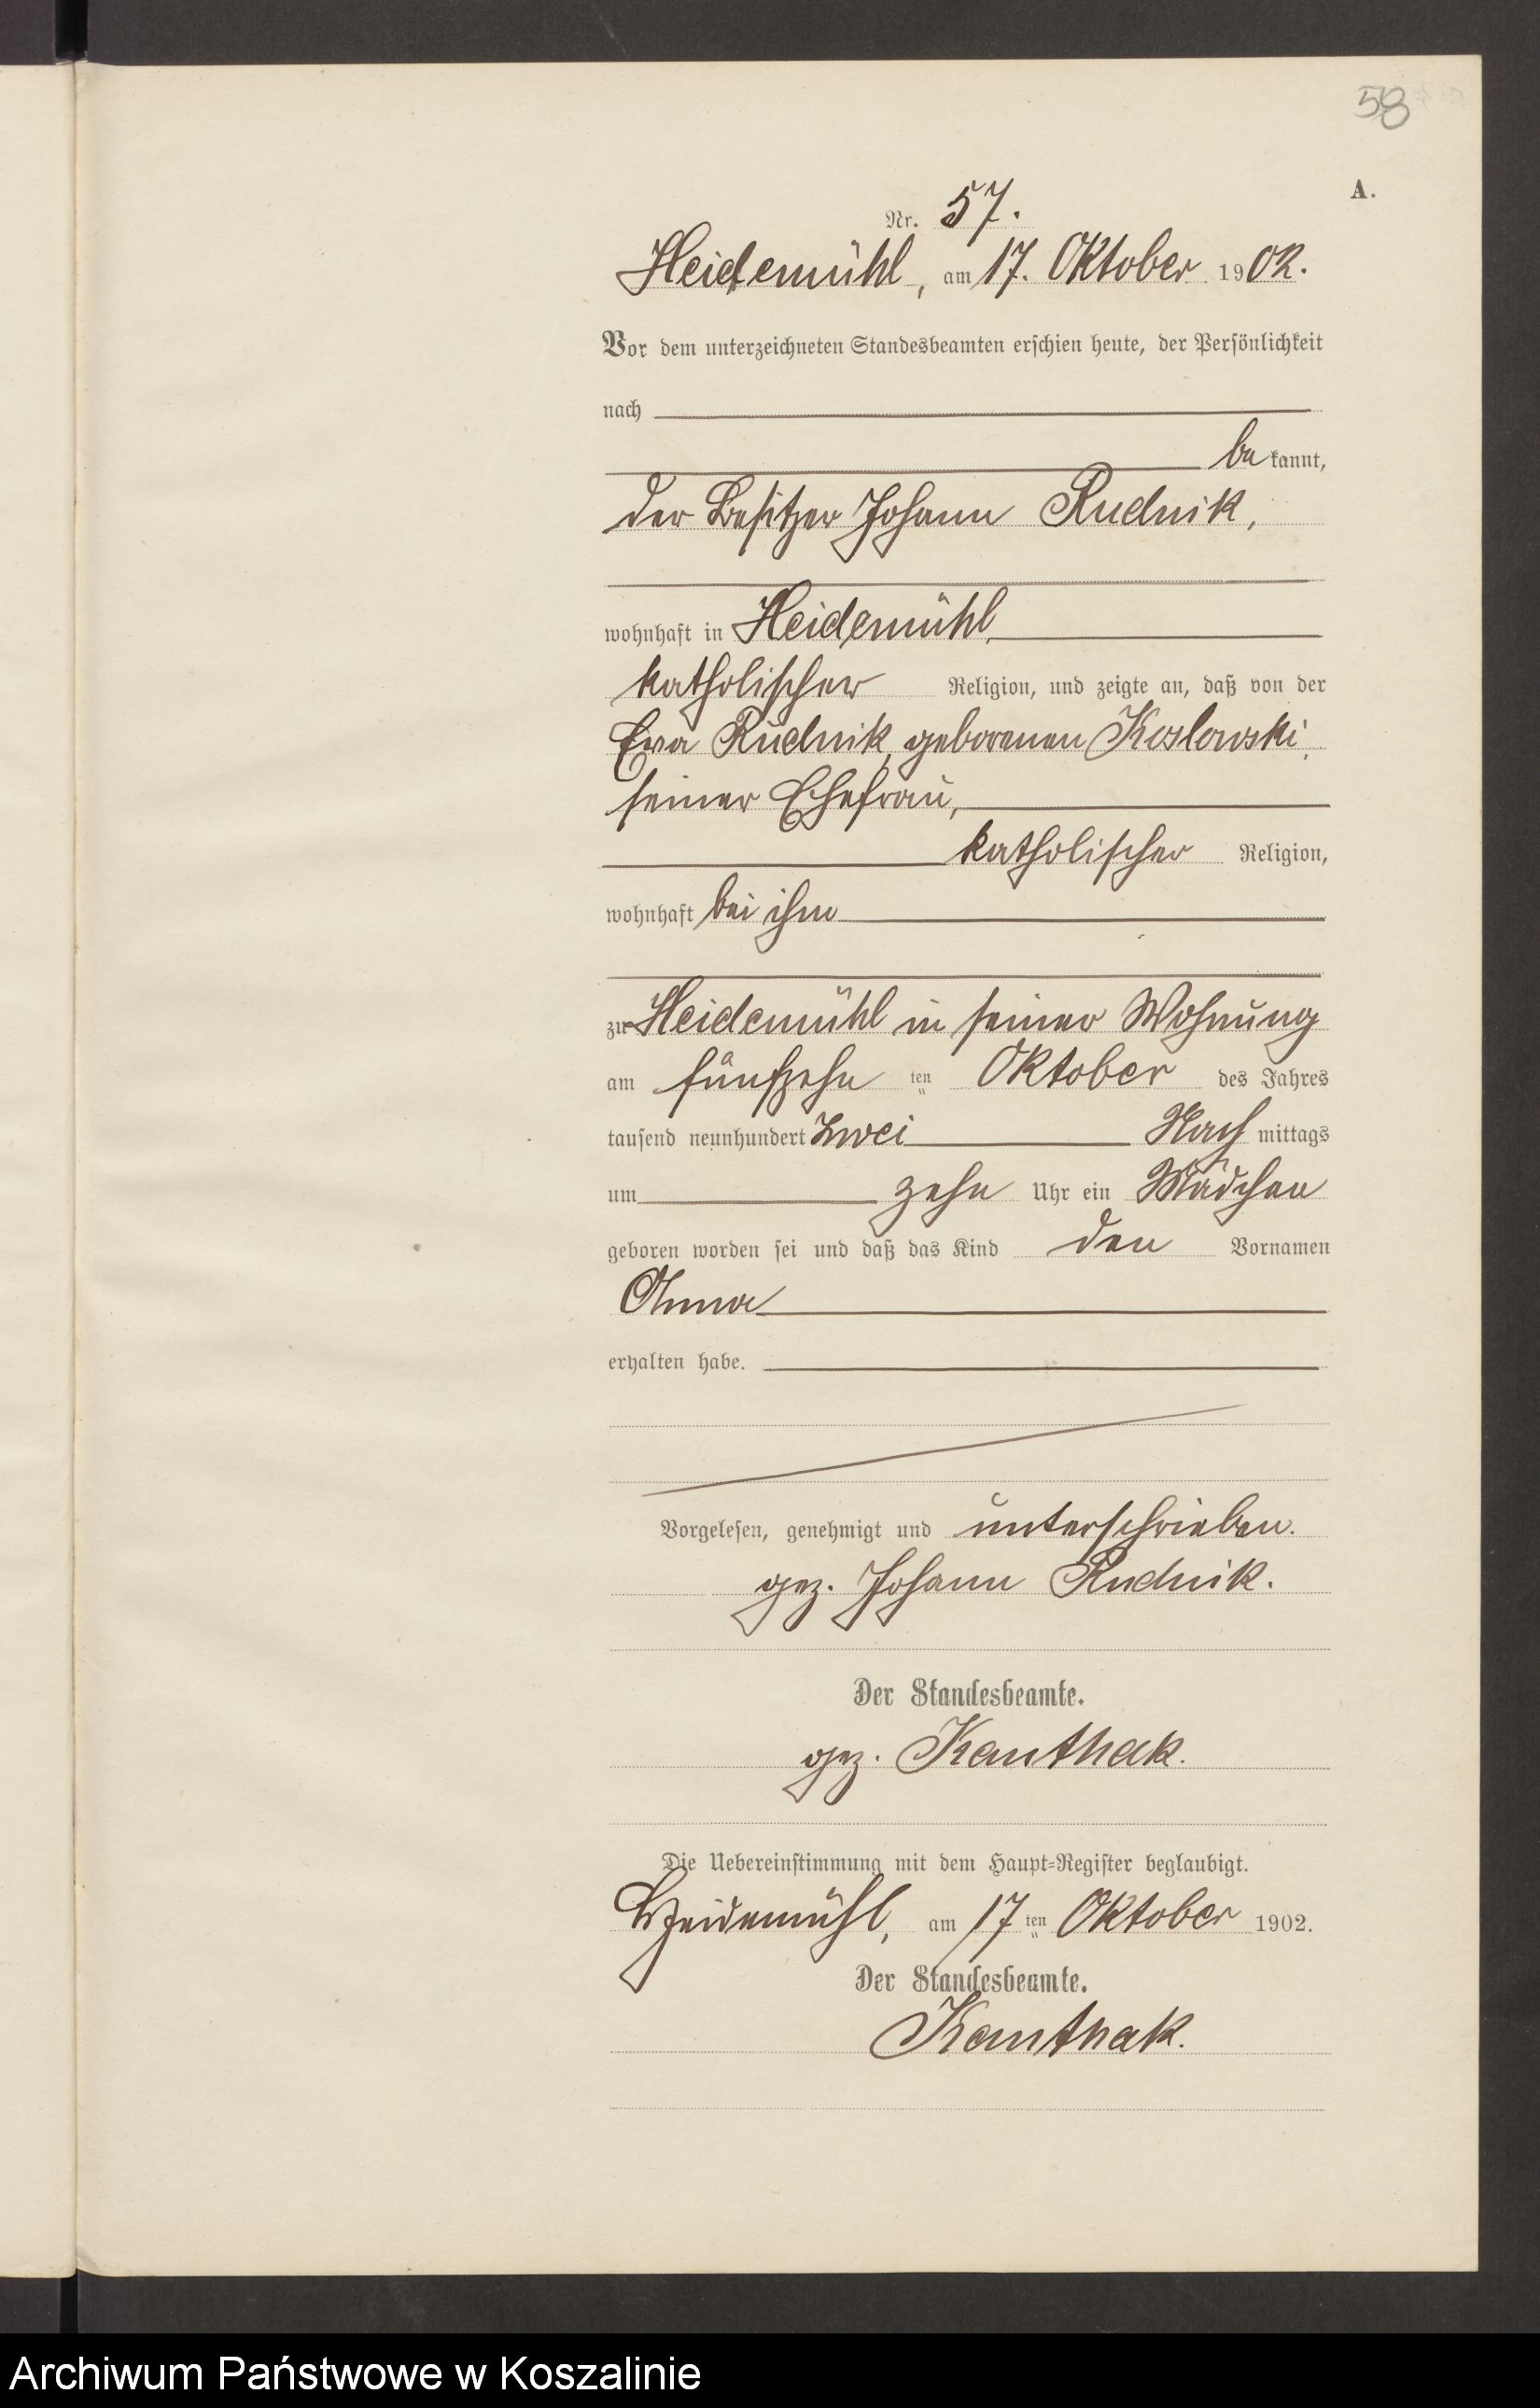 58
A.
Nr. 57.
Heidemühl, am 17. Oktober 1902.
Vor dem unterzeichneten Standesbeamten erschien heute, der Persönlichkeit
nach
be kannt,
der Besitzer Johann Rudnik,
wohnhaft in Heidemühl,
katholischer Religion, und zeigte an, daß von der
Eva Rudnik, geborenen Koslowski,
seiner Ehefrau,
katholischer Religion,
wohnhaft bei ihm
zu Heidemühl in seiner Wohnung
am fünfzehn ten Oktober des Jahres
tausend neunhundert zwei Nach mittags
um zehn Uhr ein Mädchen
geboren worden sei und daß das Kind den Vornamen
Anna
erhalten habe.
Vorgelesen, genehmigt und unterschrieben.
gez. Johann Rudnik.
Der Standesbeamte.
gez. Kanthak.
Die Uebereinstimmung mit dem Haupt=Register beglaubigt.
Heidemühl, am 17 ten Oktober 1902.
Der Standesbeamte.
Kanthak.
Archiwum Państwowe w Koszalinie